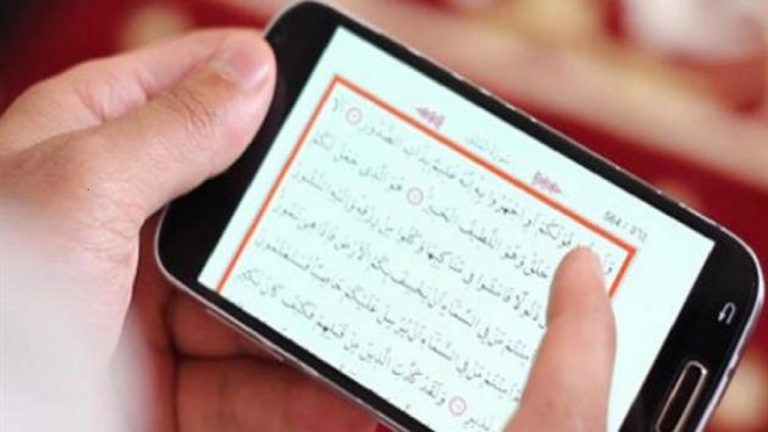 سورة الملك
قَوْلَكُمْ أَوِ اجْهَرُوا بِهِ إِنَّهُ عَلِيمٌ بِذَاتِ الصُّدُورِ أَلَا
خَلَقَ وَهُوَ اللَّطِيفُ الْخَبِيرُ هُوَ الَّذِي جَعَلَ لَكُمُ
ذَلُولًا فَامْشُوا فِي مَنَاكِبِهَا وَكُلُوا مِنْ رِزْقِهِ وَإِلَيْهِ النُّشُورُ
مَنْ فِي السَّمَاءِ أَنْ يَخْسِفَ بِكُمُ الْأَرْضَ فَإِذَا هِيَ تَمُورُ
أَمِنْتُمْ مَنْ فِي السَّمَاءِ أَنْ يُرْسِلَ عَلَيْكُمْ حَاصِبًا فَسَتَعْلَمُونَ
نَذِيرِ وَلَقَدْ كَذَّبَ الَّذِينَ مِنْ قَبْلِهِمْ فَكَيْفَ كَانَ نَكِيرِ